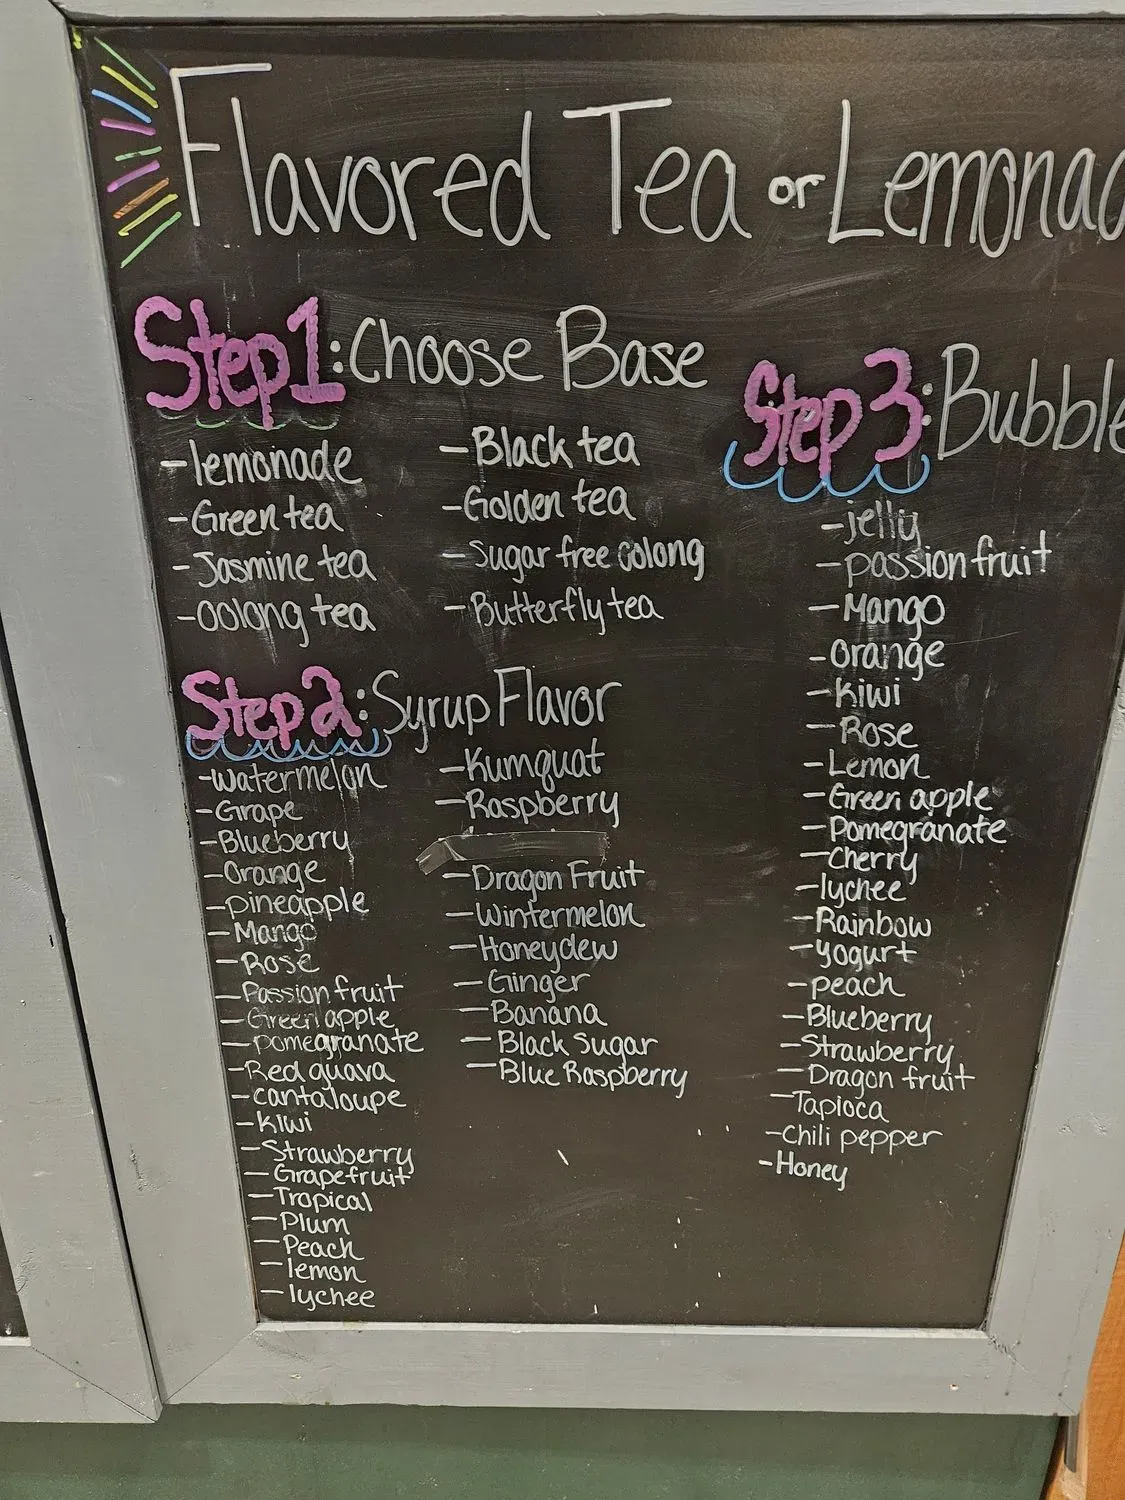 Flavored Tea or Lemonad
Step 1: Choose Base
- lemonade
- Green tea
- Jasmine tea
- Oolong tea
- Black tea
- Golden tea
- Sugar free oolong
- Butterfly tea
Step 2: Syrup Flavor
- watermelon
- Grape
- Blueberry
- Orange
- pineapple
- Mango
- Rose
- Passion fruit
- Green apple
- pomegranate
- Red guava
- cantaloupe
- kiwi
- Strawberry
- Grapefruit
- Tropical
- Plum
- Peach
- lemon
- lychee
- Kumquat
- Raspberry
- Dragon Fruit
- Wintermelon
- Honeydew
- Ginger
- Banana
- Black Sugar
- Blue Raspberry
Step 3: Bubble
- jelly
- passion fruit
- Mango
- orange
- kiwi
- Rose
- Lemon
- Green apple
- Pomegranate
- cherry
- lychee
- Rainbow
- yogurt
- peach
- Blueberry
- Strawberry
- Dragon fruit
- Tapioca
- Chili pepper
- Honey